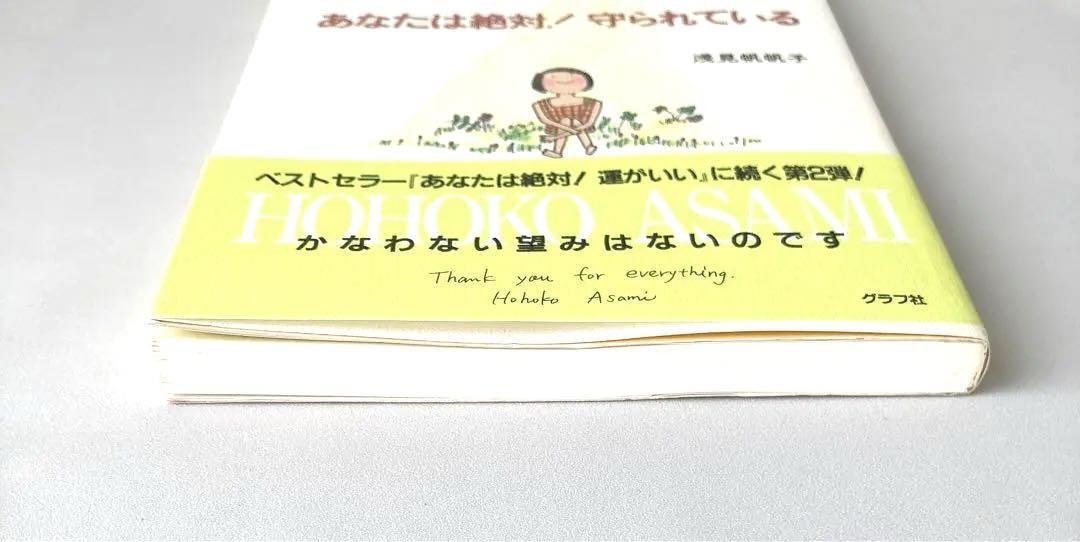 あなたは絶対!守られている
浅見帆帆子
ベストセラー『あなたは絶対!運がいい』に続く第2弾!
HOHOKO ASAMI
かなわない望みはないのです
Thank you for everything.
Hohoko Asami
グラフ社